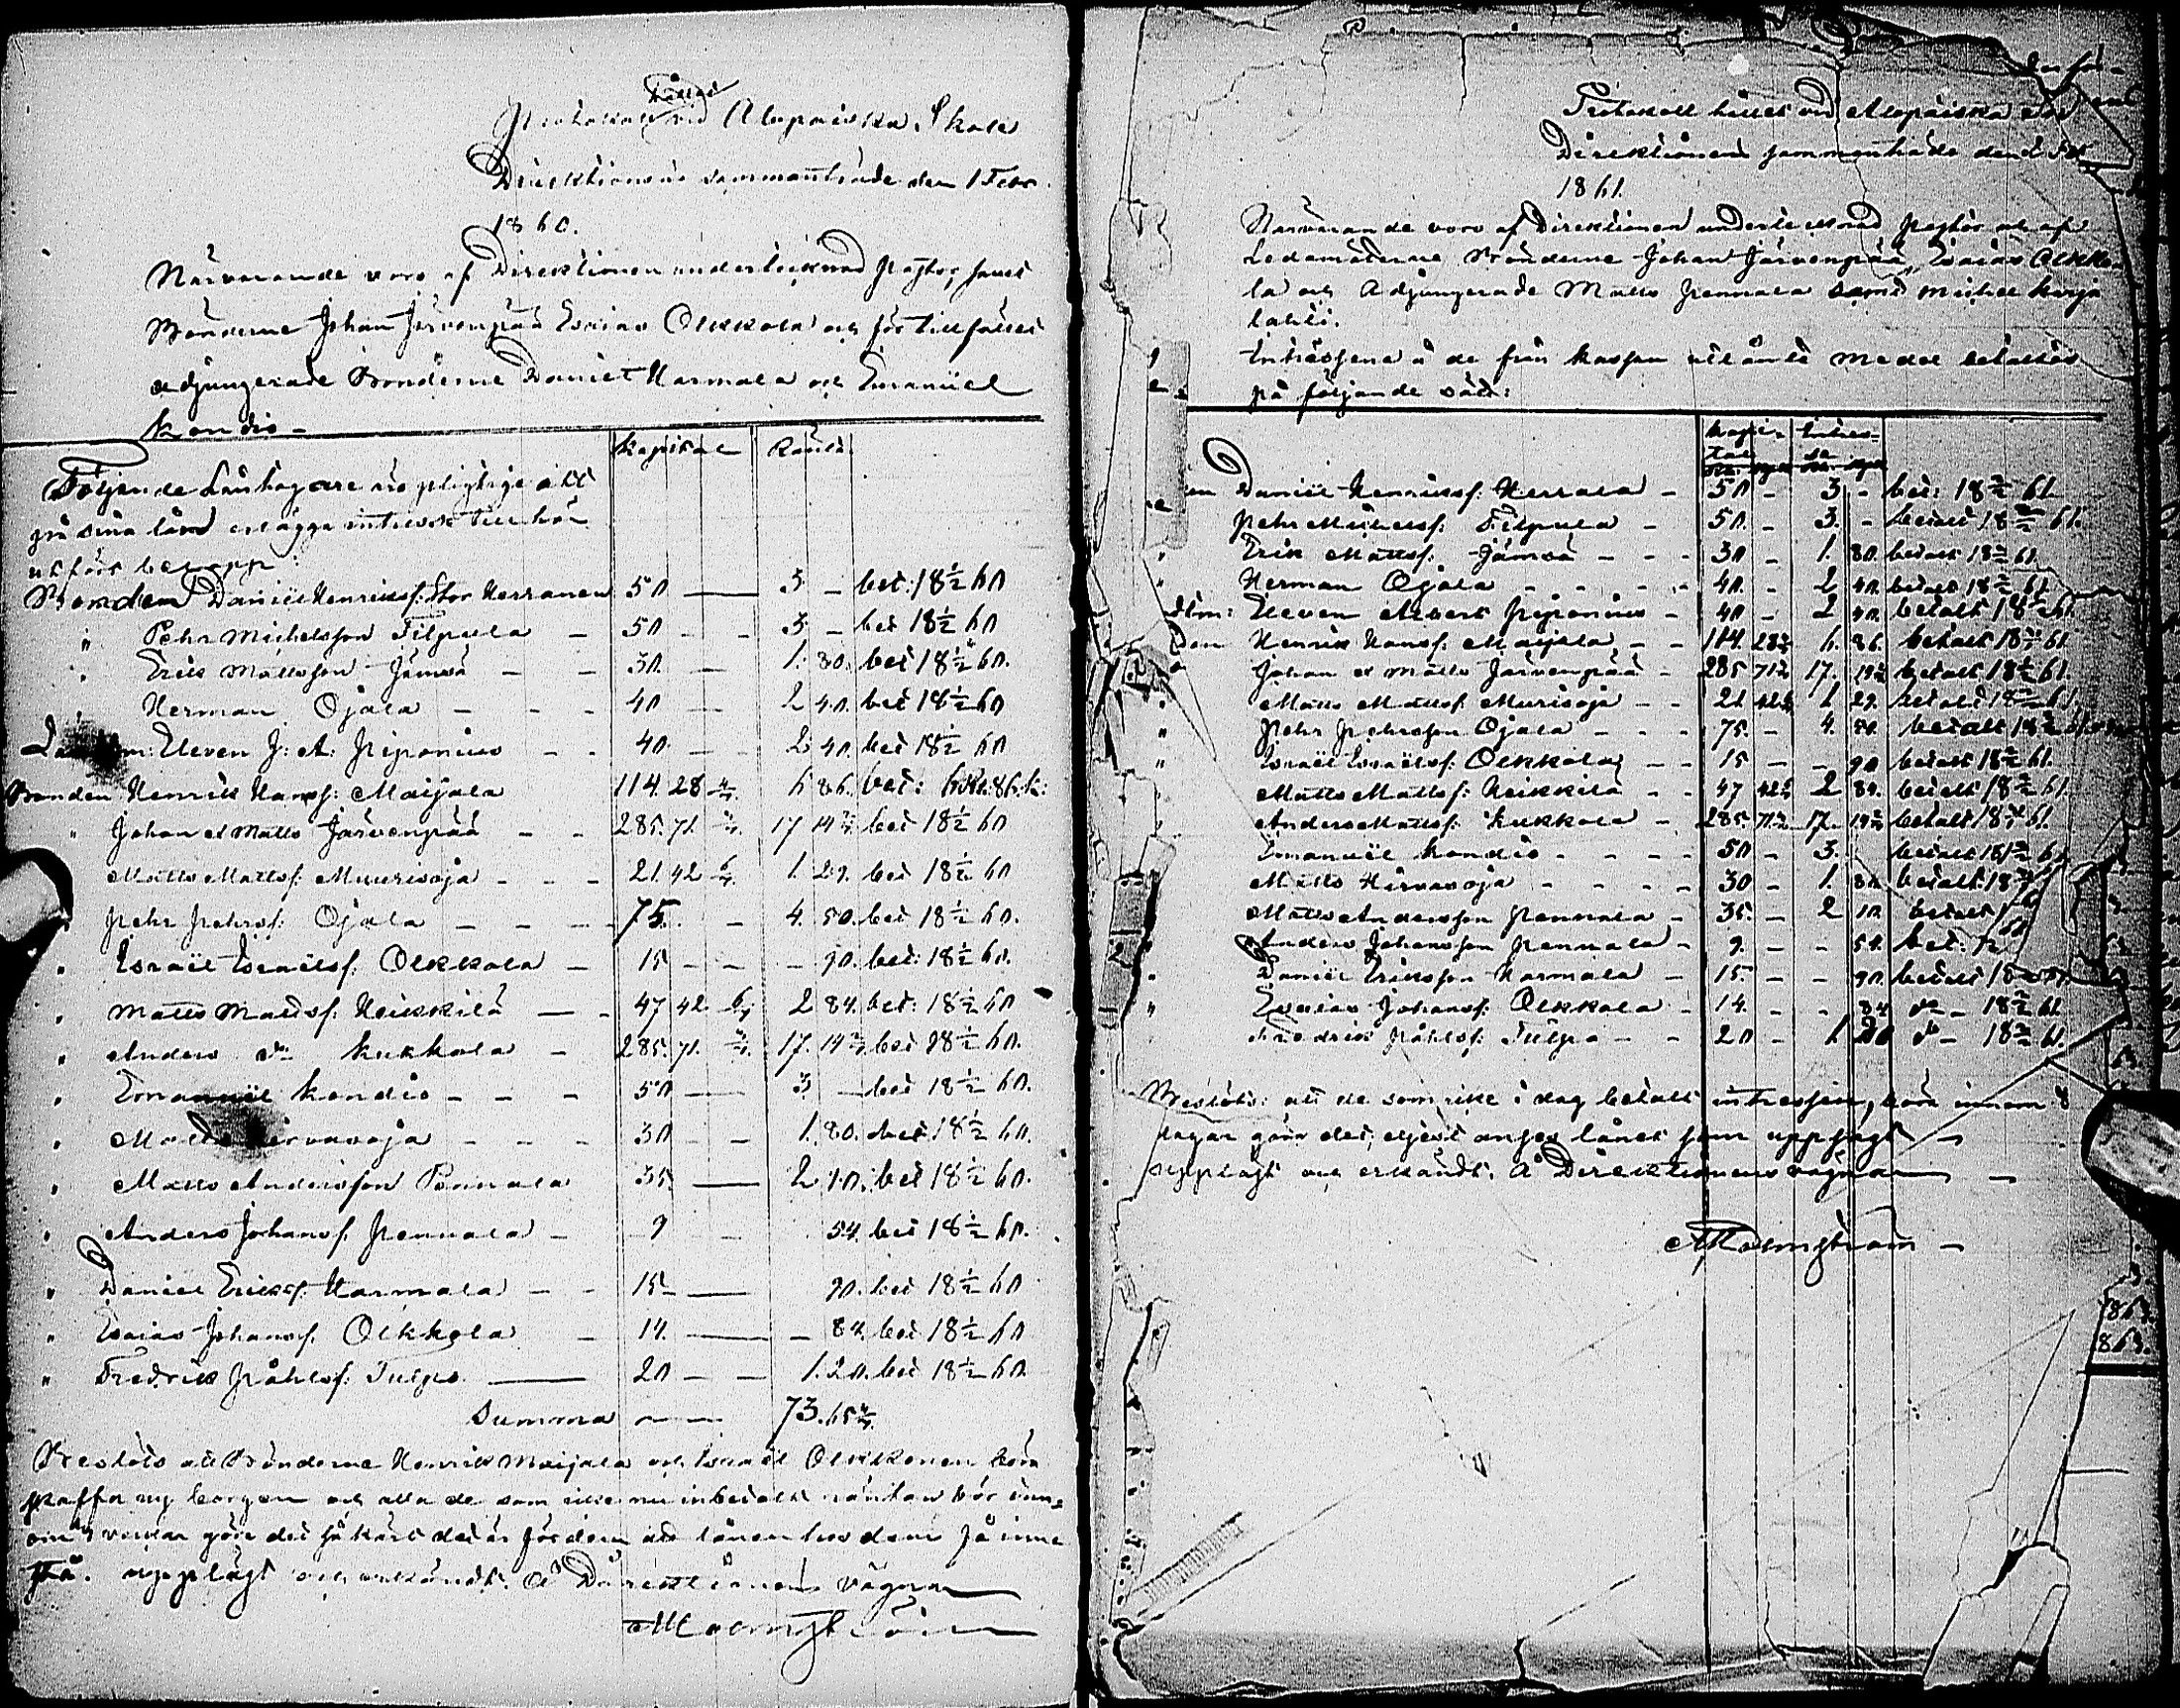 hållet
Protokoll vid Alapaiska Skole
Direktionens sammanträde den 1 Febr.
1860.
Närvarande voro af Direktionen undertecknad Pastor, samt
Bönderne Johan Järvenpää Esaias Olkkola och för tillfället
adjungerade Bönderne Daniel Harmala och Emanuel
Kondis -
Kapital Ränta
Följande Låntagare äro pligtige att
på sina lån erlägga intresse till här
utfördt belopp:
Bonden Daniel Henrikss: Stor Herranen 50 — 3 - bet: 18 1/2 60
" Pehr Michelsson Filpula - 50 - - 3 - bet 18 1/2 60
" Erik Mattsson Jämsä - - 30. — 1. 80. bet 18 1/2 60.
" Herman Ojala - - - 40 — 2 40. bet 18 1/2 60
Eleven J: A: Piponius - - 40. — 2 40. bet 18 1/2 60
Bonden Henrik Hanss: Maijala 114. 28 4/7. 6 86. bet: 6 Ru: 86. k:
" Johan et Matts Järvenpää - - 285. 71. 3/7. 17 14 2/7 bet 18 1/2 60
Matts Mattss: Muurisoja - - - 21. 42 6/7. 1. 29. bet 18 1/2 60
" Pehr Pehrss: Ojala - - - - 75. - 4. 50. bet 18 1/2 60.
" Israel Israelss: Olkkola - 15 - - - 90. bet: 18 1/2 60.
" Matts Mattss: Heikkilä - - 47 42 6/7 2 84. bet: 18 1/2 60
" Anders do Kukkola - 285. 71. 3/7. 17. 14 2/7. bet 18 1/2 60.
" Emanuel Kondis - - - 50 — 3 - bet 18 1/2 60.
" Matts Hirvasoja - - - 30 - - 1. 80. bet 18 1/2 60.
" Matts Andersson Pennala 35. — 2 10. bet 18 1/2 60.
" Anders Johanss: Pennala - 9 - - 54. bet 18 1/2 60.
" Daniel Erikss: Harmala - - 15 — 90. bet 18 1/2 60
" Esaias Johanss: Olkkola - 14. — - 84. bet 18 1/2 60
" Fredrik Påhlss: Tulpo — 20 - - 1. 20. bet 18 1/2 60.
Summa — 73. 65 4/7.
Beslöts att Bönderne Henrik Maijala och Israel Olkkonen böra
skaffa ny borgen och alla de som icke nu inbetalt räntan bör inn-
om veckor göra det så kärt det är för dem att lånen hos dem få inne
stå. Uppläst och erkändt. Å Direktionens vägnar
A Malmström
Protokoll hållet vid Alapaiska
Direktionens sammanträde den Febr
1861.
Närvarande voro af Direktionen undertecknad Pastor och af
Ledamöterne Bönderne Johan Järvenpää, Esaias Olkko
la och Adjungerade Matts Pennala samt Michel Karja
lahti.
Intressena å de från kassan utlånte medel betaltes
på följande sätt:
Kapi- Intres-
tal se
Daniel Henrikss: Herrala - 50 - 3 - bet: 18 61.
Pehr Michelss: Filpula - 50. - 3. - betalt 18 61.
" Erik Mattss: Jämsä - - - 30 - 1. 80. betalt 18 61.
" Herman Ojala - - - - 40. - 2 40. betalt 18 61.
Eleven Albert Piponius - 40 - 2 40. betalt 18 61.
Henrik Hanss: Maijala - - 114. 28 4/7 6. 86. betalt 18 61.
Johan et Matts Järvenpää - 285 71 3/7 17. 14 2/7 betalt 18 61.
" Matts Mattss: Murisoja - - 21. 42 6/7 1. 29. betalt 18 61.
" Pehr Pehrsson Ojala - - - 75. - 4. 50. betalt 18
" Israel Israelss: Olkkola - - 15 - - 90 betalt 18 61.
Matts Mattss: Heikkilä - - 47 42 6/7 2 84. betalt 18 61.
" Anders Mattss: Kukkola - 285. 71 3/7 17. 14 2/7 betalt 18 61.
Emanuel Kondis - - - - 50 - 3. betalt 18 61
Matts Hirvasoja - - - - 30 - 1. 80. betalt 18
Matts Andersson Pennala - 35. - 2 10. betalt
" Anders Johansson Pennala - 9. - - 54. bet:
" Daniel Eriksson Harmala - 15. - - 90. betalt 18
" Esaias Johanss: Olkkola - 14. - - 84 do - 18 61.
Fredrik Påhlss: Tulpo - - 20 - 1 20 do - 18 61.
Beslöts: att de som icke i dag betalt intressen, böra innom 8
dagar göra det; eljest anses lånet som uppsagt —
Uppläst och erkändt. Å Direktionens vägnar —
A Malmström -
1863.
863.